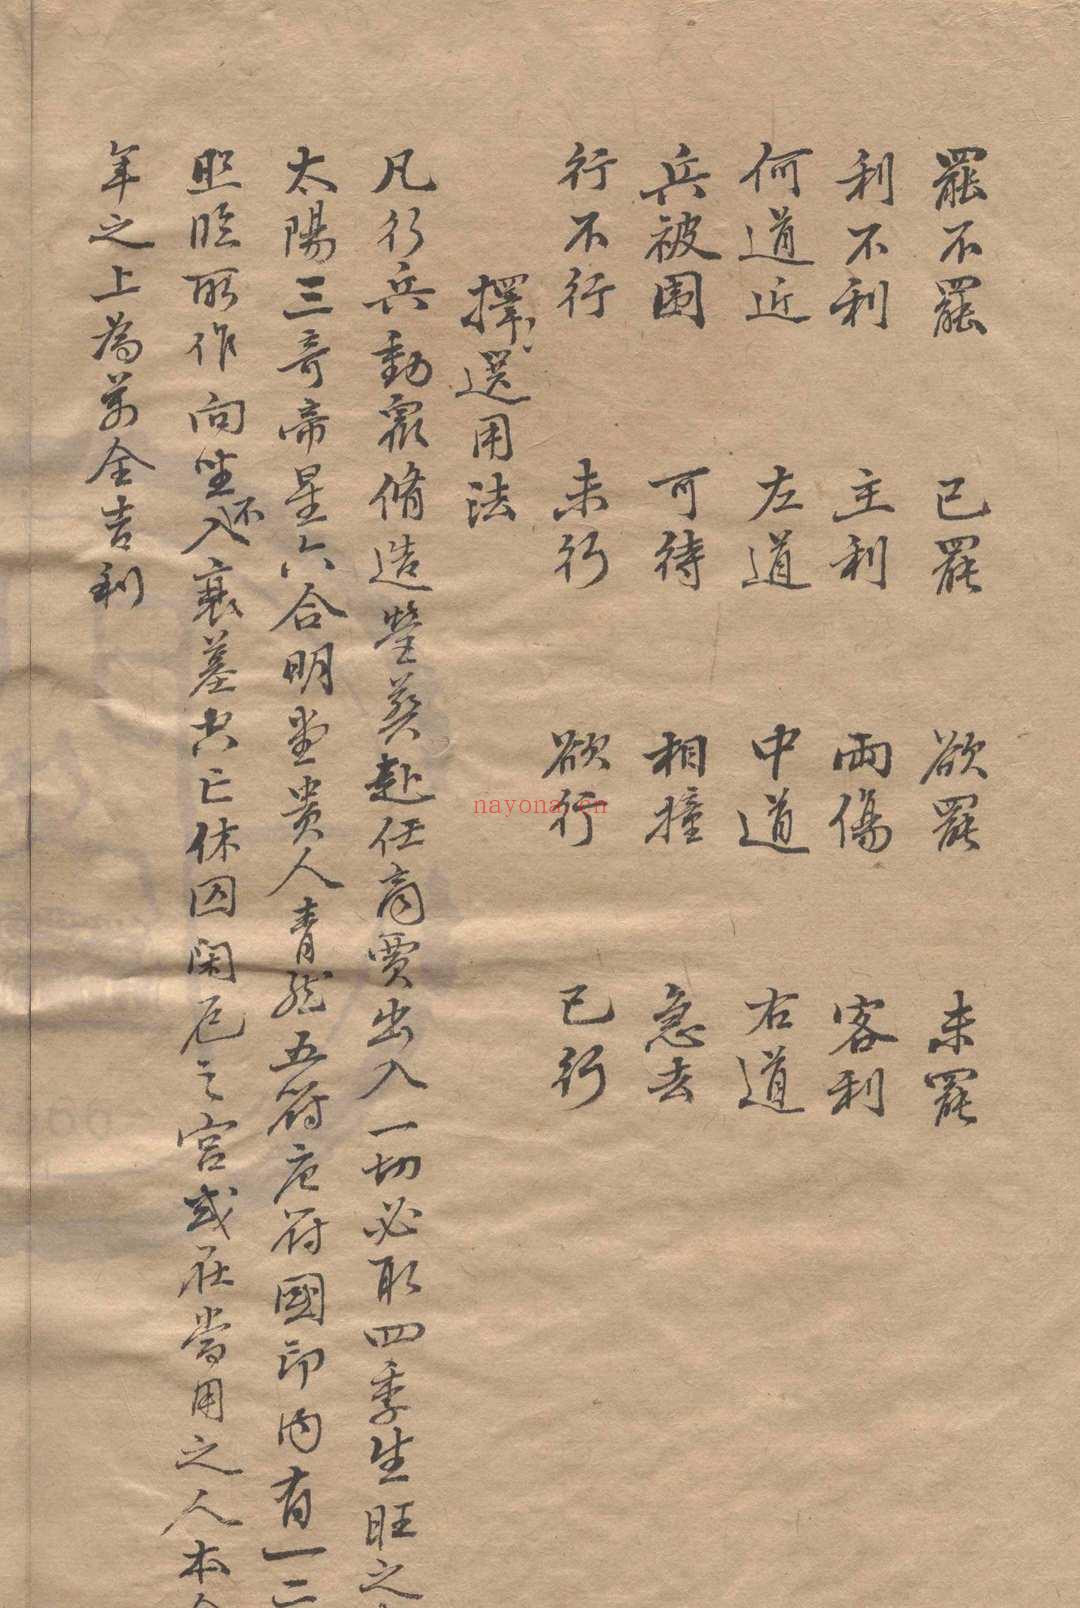 罷不罷　已罷　欲罷　未罷
利不利　主利　兩傷　客利
何道近　左道　中道　右道
兵被围　可待　相撞　急去
行不行　未行　欲行　已行
擇選用法
凡行兵動衆脩造塋葬赴任商賈出入一切必取四季生旺之
太陽三奇帝星六合明堂貴人青龙五符唐符國印内有一二
照临所作向坐不入衰墓空亡休囚閑厄之宮或在當用之人本命
年之上為萬全吉利
nayona.cn